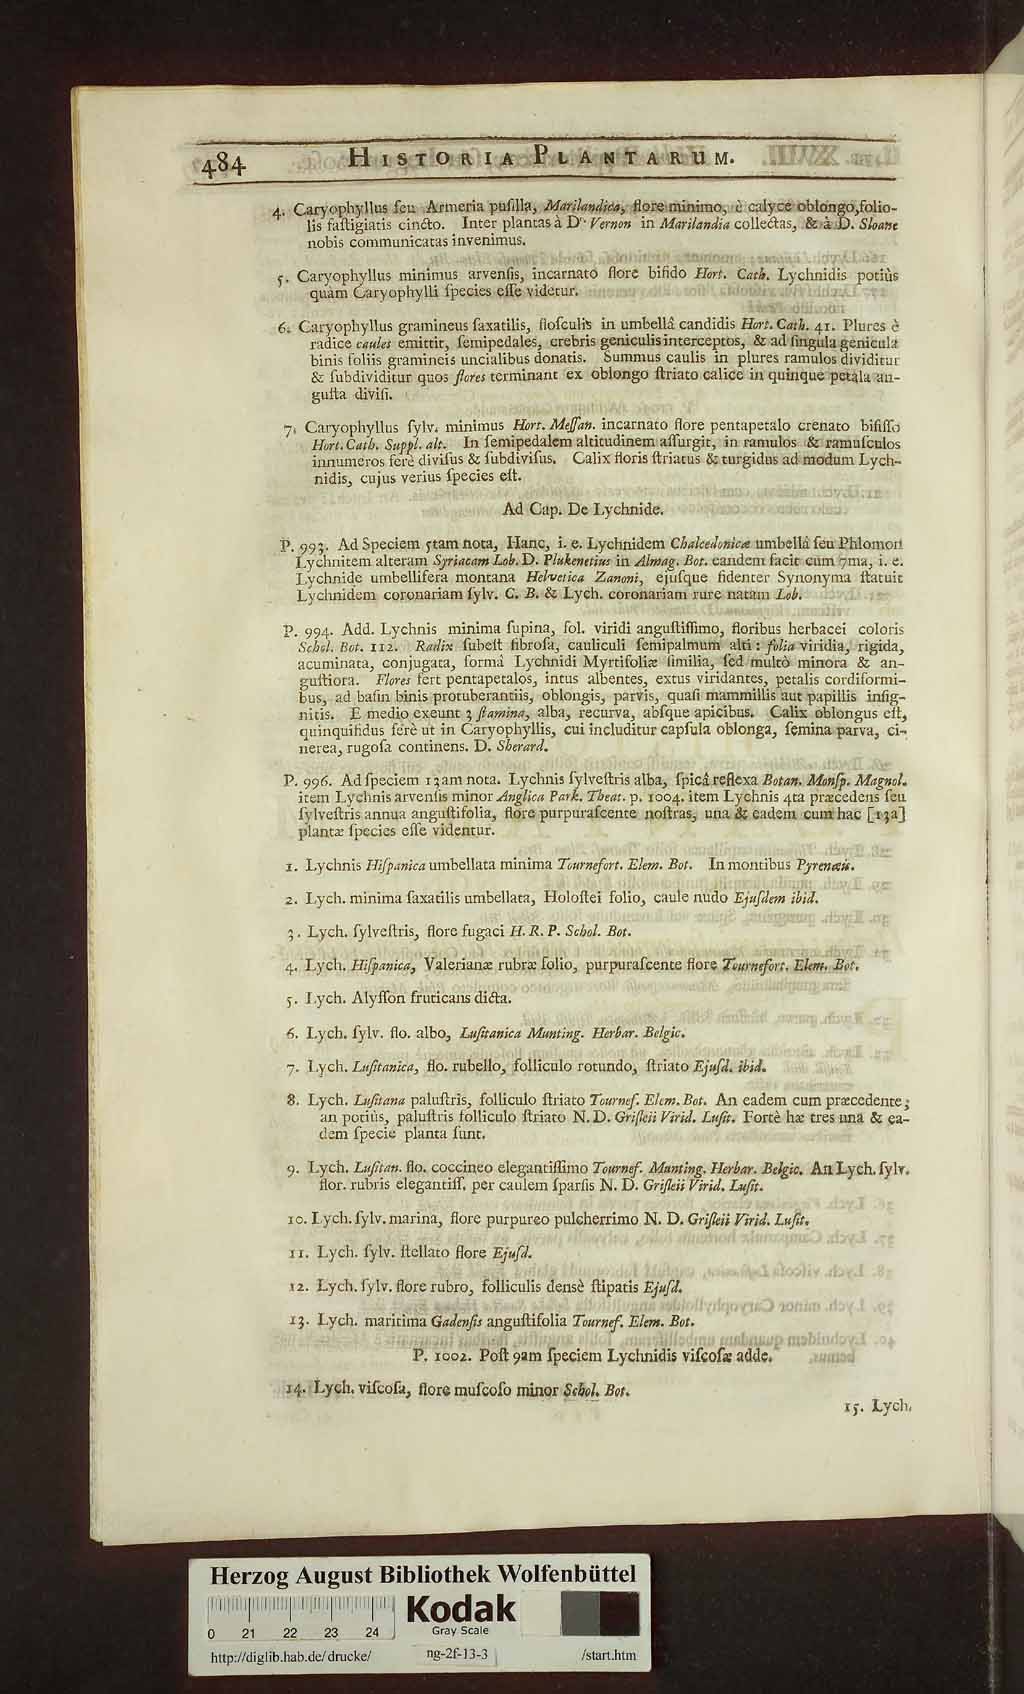 484 HISTORIA PLANTARUM.
4. Caryophyllus ſeu Armeria puſilla, Marilandica, flore minimo, è calyce oblongo, folio-
lis faſtigiatis cincto. Inter plantas à Dº. Vernon in Marilandia collectas, & à D. Sloane
nobis communicatas invenimus.
5. Caryophyllus minimus arvenſis, incarnato flore bifido Hort. Cath. Lychnidis potiùs
quàm Caryophylli ſpecies eſſe videtur.
6. Caryophyllus gramineus ſaxatilis, floſculis in umbellâ candidis Hort. Cath. 41. Plures è
radice caules emittit, ſemipedales, crebris geniculis interceptos, & ad ſingula genicula
binis foliis gramineis uncialibus donatis. Summus caulis in plures ramulos dividitur
& ſubdividitur quos flores terminant ex oblongo ſtriato calice in quinque petala an-
guſta diviſi.
7. Caryophyllus ſylv. minimus Hort. Meſſan. incarnato flore pentapetalo crenato bifiſſo
Hort. Cath. Suppl. alt. In ſemipedalem altitudinem aſſurgit, in ramulos & ramuſculos
innumeros ferè diviſus & ſubdiviſus. Calix floris ſtriatus & turgidus ad modum Lych-
nidis, cujus verius ſpecies eſt.
Ad Cap. De Lychnide.
P. 993. Ad Speciem 5tam nota, Hanc, i. e. Lychnidem Chalcedonicæ umbellâ ſeu Phlomon
Lychnitem alteram Syriacam Lob. D. Plukenetius in Almag. Bot. eandem facit cum 7ma, i. e.
Lychnide umbellifera montana Helvetica Zanoni, ejuſque fidenter Synonyma ſtatuit
Lychnidem coronariam ſylv. C. B. & Lych. coronariam rure natam Lob.
P. 994. Add. Lychnis minima ſupina, fol. viridi anguſtiſſimo, floribus herbacei coloris
Schol. Bot. 112. Radix ſubeſt fibroſa, cauliculi ſemipalmum alti: folia viridia, rigida,
acuminata, conjugata, formâ Lychnidi Myrtifoliæ ſimilia, ſed multò minora & an-
guſtiora. Flores fert pentapetalos, intus albentes, extus viridantes, petalis cordiformi-
bus, ad baſin binis protuberantiis, oblongis, parvis, quaſi mammillis aut papillis inſig-
nitis. E medio exeunt 3 ſtamina, alba, recurva, abſque apicibus. Calix oblongus eſt,
quinquifidus ferè ut in Caryophyllis, cui includitur capſula oblonga, ſemina parva, ci-
nerea, rugoſa continens. D. Sherard.
P. 996. Ad ſpeciem 13am nota. Lychnis ſylveſtris alba, ſpicâ reflexa Botan. Monſp. Magnol.
item Lychnis arvenſis minor Anglica Park. Theat. p. 1004. item Lychnis 4ta præcedens ſeu
ſylveſtris annua anguſtifolia, flore purpuraſcente noſtras, una & eadem cum hac [13a]
plantæ ſpecies eſſe videntur.
1. Lychnis Hiſpanica umbellata minima Tournefort. Elem. Bot. In montibus Pyrenæis.
2. Lych. minima ſaxatilis umbellata, Holoſtei folio, caule nudo Ejuſdem ibid.
3. Lych. ſylveſtris, flore fugaci H. R. P. Schol. Bot.
4. Lych. Hiſpanica, Valerianæ rubræ folio, purpuraſcente flore Tournefort. Elem. Bot.
5. Lych. Alyſſon fruticans dicta.
6. Lych. ſylv. flo. albo, Luſitanica Munting. Herbar. Belgic.
7. Lych. Luſitanica, flo. rubello, folliculo rotundo, ſtriato Ejuſd. ibid.
8. Lych. Luſitana paluſtris, folliculo ſtriato Tournef. Elem. Bot. An eadem cum præcedente;
an potiùs, paluſtris folliculo ſtriato N. D. Griſleii Virid. Luſit. Fortè hæ tres una & ea-
dem ſpecie planta ſunt.
9. Lych. Luſitan. flo. coccineo elegantiſſimo Tournef. Munting. Herbar. Belgic. An Lych. ſylv.
flor. rubris elegantiſſ. per caulem ſparſis N. D. Griſleii Virid. Luſit.
10. Lych. ſylv. marina, flore purpureo pulcherrimo N. D. Griſleii Virid. Luſit.
11. Lych. ſylv. ſtellato flore Ejuſd.
12. Lych. ſylv. flore rubro, folliculis densè ſtipatis Ejuſd.
13. Lych. maritima Gadenſis anguſtifolia Tournef. Elem. Bot.
P. 1002. Poſt 9am ſpeciem Lychnidis viſcoſæ adde.
14. Lych. viſcoſa, flore muſcoſo minor Schol. Bot.
15. Lych.
Herzog August Bibliothek Wolfenbüttel
Kodak
Gray Scale
0 21 22 23 24
http://diglib.hab.de/drucke/ ng-2f-13-3 /start.htm